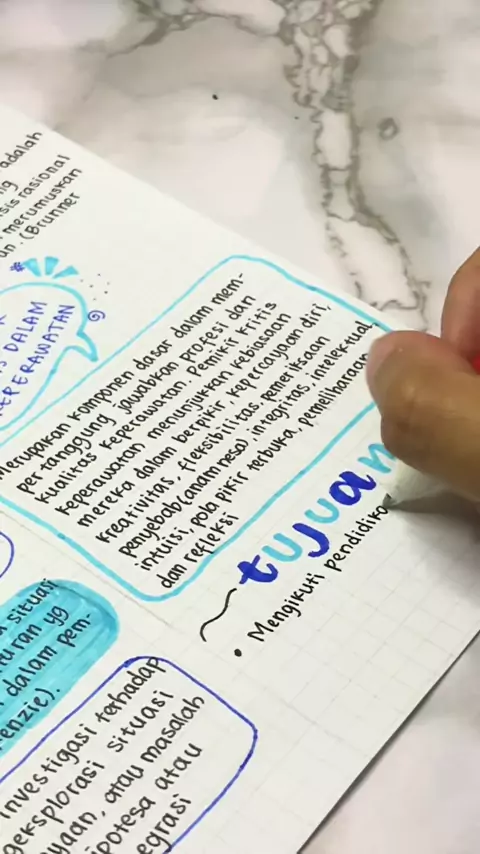 adalah
sis rasional
merumuskan
(Brunner
DALAM
KEPERAWATAN
Merupakan komponen dasar dalam mem-
pertanggung jawabkan profesi dan
kualitas keperawatan. Pemikir kritis
keperawatan menunjukkan kebiasaan
mereka dalam berpikir, kepercayaan diri,
kreativitas, fleksibilitas, pemeriksaan
penyebab (anamnesa), integritas, intelektual,
intuisi, pola pikir terbuka, pemeliharaan
dan refleksi
tujuan
• Mengikuti pendidika
situasi
turan yg
dalam pem-
enzie).
investigasi terhadap
geksplorasi situasi
yaan, atau masalah
ipotesa atau
egrasi